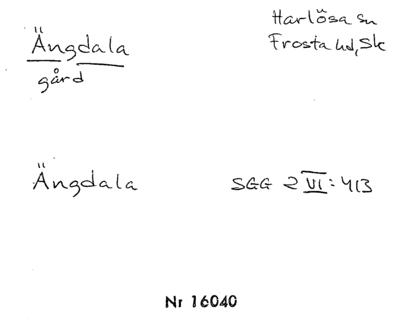 Ängdala
gård
Harlösa sn
Frosta hd, Sk
Ängdala
SGG 2 VI: 413
Nr 16040